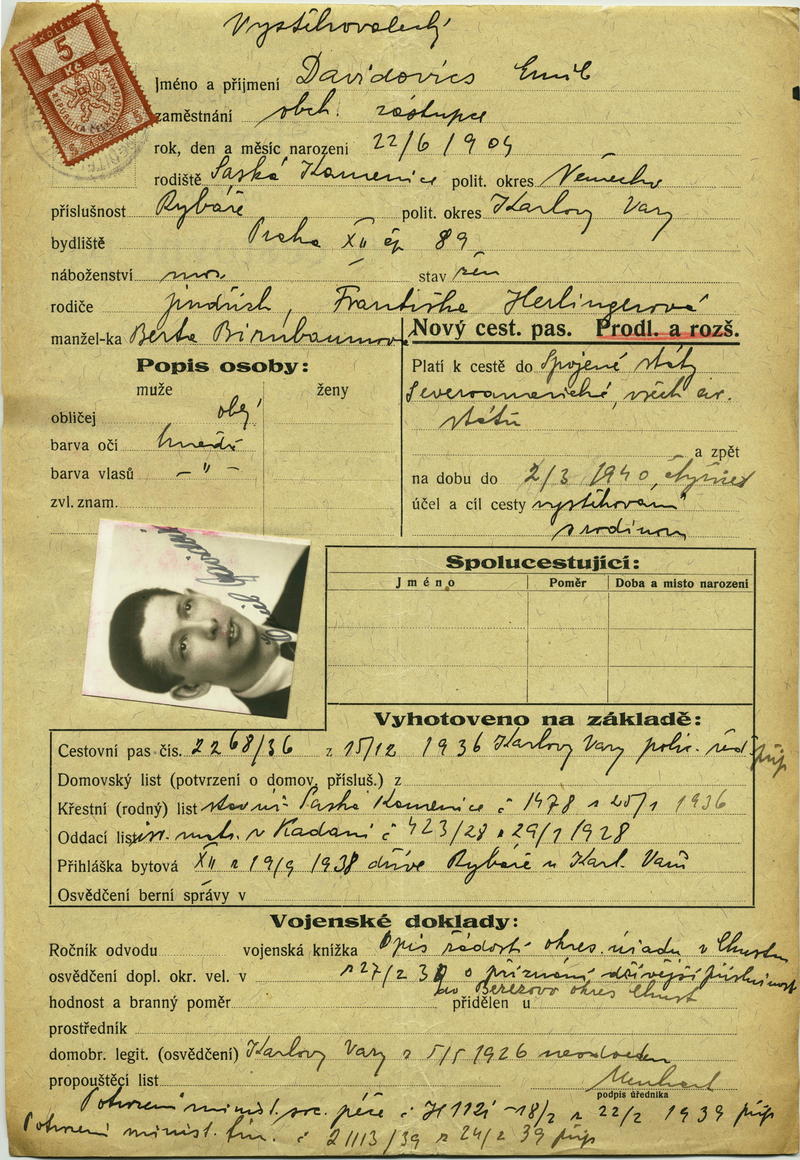 Vystěhovalecký
KOLEK
5
Kč
REPUBLIKA ČESKOSLOVENSKÁ
Jméno a příjmení Davidovics Emil
zaměstnání obch. zástupce
rok, den a měsíc narození 22/6 1904
rodiště Saská Kamenice polit. okres Německo
příslušnost Rybáře polit. okres Karlovy Vary
bydliště Praha XII čp 89
náboženství mos. stav žen
rodiče Jindřich, Františka Herlingerová
manžel-ka Berta Birnbaumová
Nový cest. pas. Prodl. a rozš.
Popis osoby:
muže ženy
obličej obl.
barva očí hnědé
barva vlasů – " –
zvl. znam.
Platí k cestě do Spojené státy
Severoamerické, všech evr.
států
a zpět
na dobu do 2/3 1940,
účel a cíl cesty vystěhování
s rodinou
Spolucestující:
Jméno Poměr Doba a misto narození
Vyhotoveno na základě:
Cestovní pas čís. 2268/36 z 15/12 1936 Karlovy Vary polic. řed. přip
Domovský list (potvrzení o domov. přísluš.) z
Křestní (rodný) list Saská Kamenice č 1478 z 25/1 1936
Oddací list isr. matr. v Kadani č 423/28 z 29/1 1928
Přihláška bytová XII z 19/9 1938 dříve Rybáře u Karl. Varů
Osvědčení berní správy v
Vojenské doklady:
Ročník odvodu vojenská knížka Opis žádosti okres. úřadu v Chustu
osvědčení dopl. okr. vel. v z 27/2 39 o přiznání dřívější příslušnosti
do Berezovo okres Chust
hodnost a branný poměr přidělen u
prostředník
domobr. legit. (osvědčení) Karlovy Vary z 5/5 1926 neodveden
propouštěcí list
podpis úředníka
Potvrzení minist. soc. péče č H 1121-18/2 z 22/2 1939 přip
Potvrzení minist. fin. č 21113/39 z 24/2 39 přip